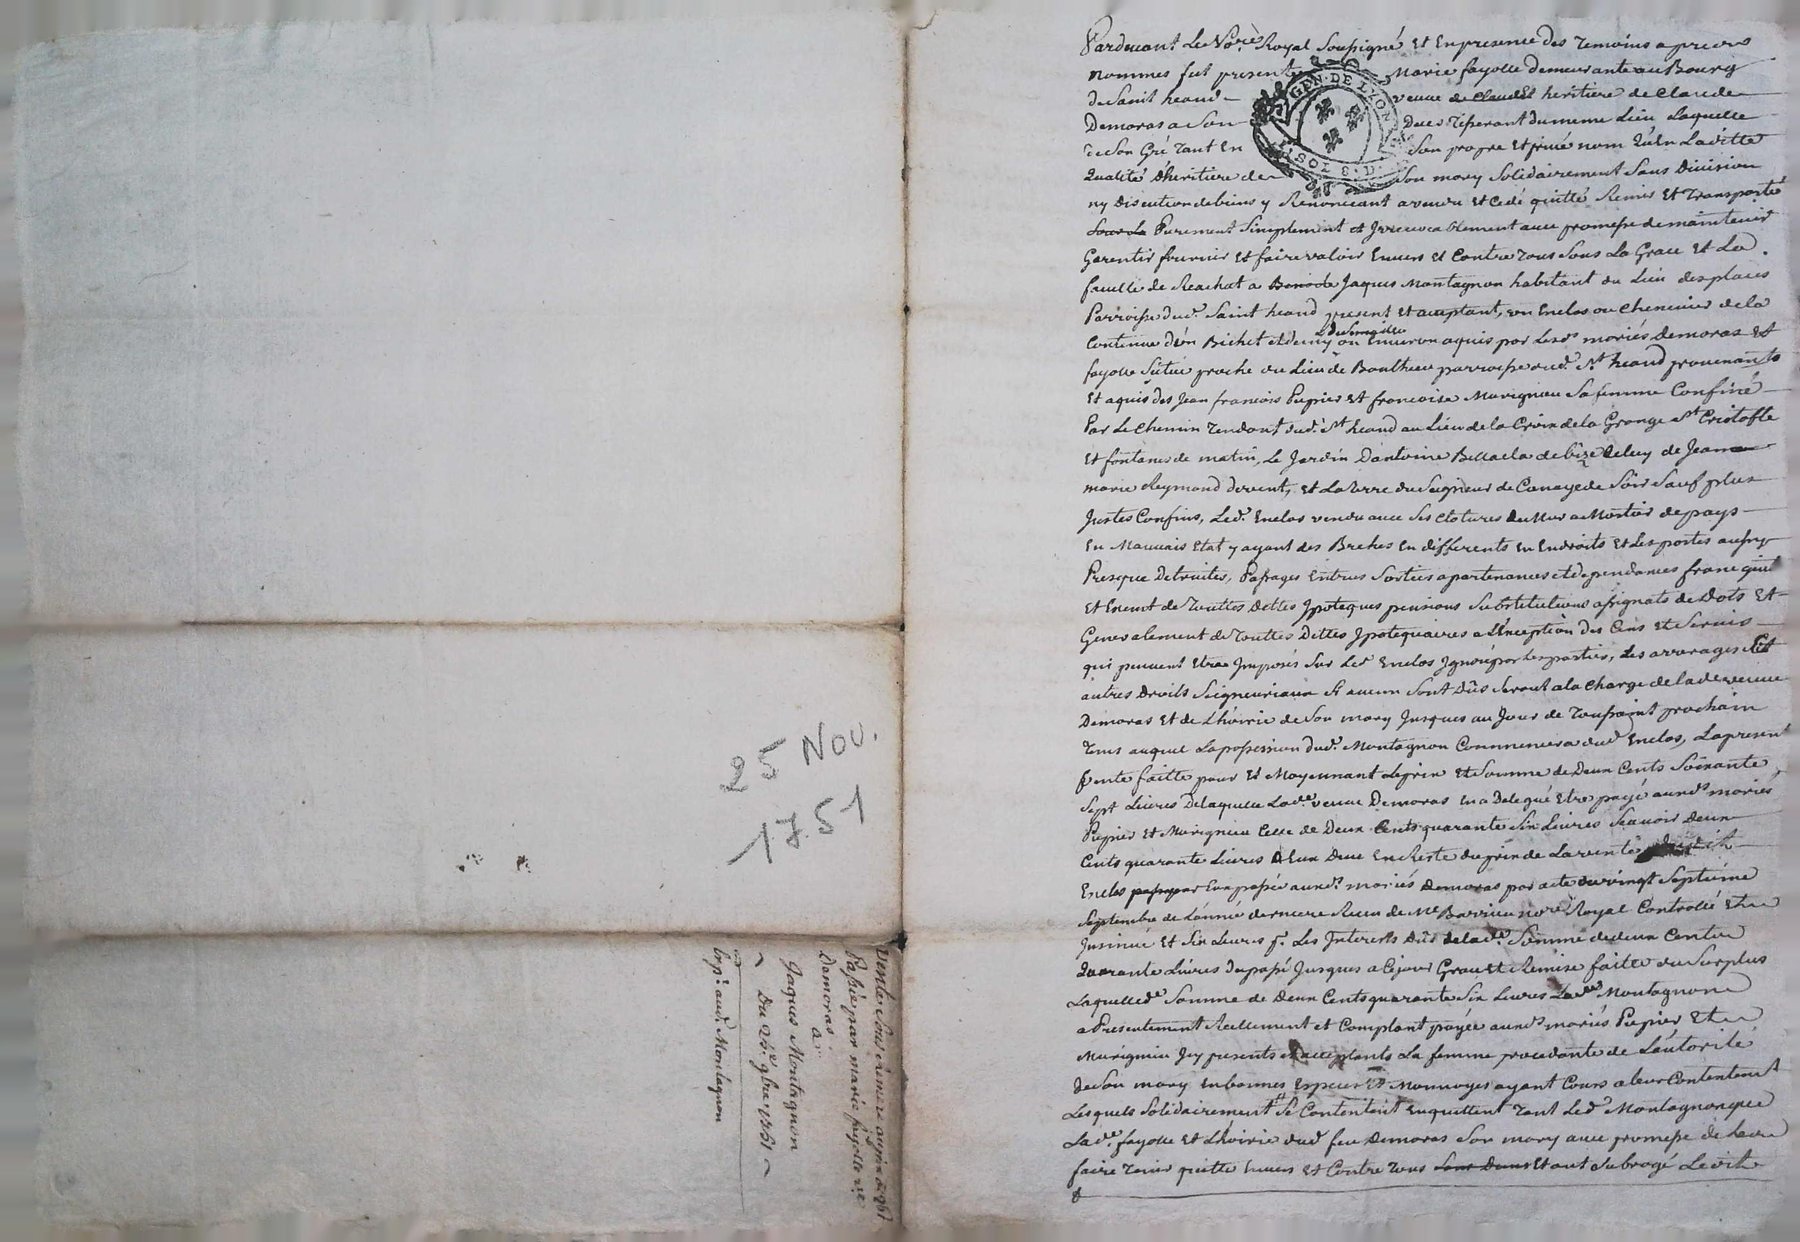 25 Nov.
1751
Vente sous
Passée par marie fayolle ve
Demoras
a
Jaques Montagnon
Du 25e 9bre 1751
Exp. aud. Montagnon
Pardevant Le No.re Royal Soussigné Et En presence des Temoins apres
nommes fut presente Marie fayolle demeurante au Bourg
de Saint heand veuve de Claude Et heritiere de Claude
Demoras a Son Deces Tisserant du meme Lieu Laquelle
de Son Gré Tant En Son propre Et privé nom Qu'En Laditte
Qualité D'heritiere de Son mary Solidairement Sans Division
ny Discution de biens y Renonceant a vendu Et Cedé quitté Remis Et Transporté
Purement Simplement Et Irrevocablement avec promesse de maintenir
Garentir fournir Et faire valoir Envers Et Contre Tous Sous La Grace Et La
faculte de Reachat a Jaques Montagnon habitant du Lieu des places
Parroisse dud. Saint heand present Et aceptant, un Enclos ou Chenevier de la
Contenue d'un Bichet et demy ou Environ aquis par Lesd. mariés Demoras Et
fayolle Situé proche du Lieu de Boultheu parroisse dud. St heand provenants
Et aquis des Jean francois Pupier Et francoise Murigneu Sa femme Confiné
Par Le Chemin Tendant dud. St heand au Lieu de la Croix de la Grange St Cristofle
Et fontanes de matin, Le Jardin D'antoine de bize Celuy de Jean
marie Reymond devent, Et La terre du Seigneur de Soir Sauf plus
Justes Confins, Led. Enclos vendu avec Ses Clotures de Mur a Mortier de pays
En Mauvais Etat y ayant des Breches En differents Endroits Et Les portes aussy
Presque Detruites, Passages Entrées Sorties apartenances et dependances franc quitte
Et Exempt de Touttes Dettes Ipoteques pensions Substitutions assignats de Dots Et
Generalement de Touttes Dettes Ipotequaires a L'Exception des Cens Et Servis
qui peuvent Etre Imposés Sur Led. Enclos Ignoré par Les parties, Les arrerages Et
autres Droits Seigneuriaux Si aucun Sont Dûs Seront a la Charge de lade veuve
Demoras Et de L'hoirie de Son mary Jusques au Jour de Toussaint prochain
Tems auquel La possession dud. Montagnon Commencera dud. Enclos, La present
vente faitte pour Et Moyennant Le prix Et Somme de Deux Cents Soixante
Sept Livres De laquelle Lade veuve Demoras En a Delegué Etre payé auxds mariés
Pupier Et Murigneu Celle de Deux Cents quarante Six Livres Scavoir Deux
Cents quarante Livres a Eux Due En Reste du prix de La vente dudit
Enclos Eux passée auxd. mariés Demoras par acte du vingt Septieme
Septembre de L'année derniere Recu de Me Barrieu nore Royal Controllé Et
Insinué Et Six Livres pr. Les Interests Dûs de lade. Somme de deux Cents
quarante Livres du passé Jusques a Ce jour Grace Et Remise faite du Surplus
Laquelle de Somme de Deux Cents quarante Six Livres Montagnon
a Presentement Reellement et Comptant payée auxds mariés Pupier Et
Murigneu Icy presents Et acceptants La femme procedante de L'autorité
de Son mary En bonnes Especes Et Monnoyes ayant Cours a leur Contentement
Lesquels Solidairement Se Contentent Enquittent Tant Led. Montagnon que
Lade fayolle Et L'hoirie dud. feu Demoras Son mary avec promesse de Leur
faire Tenir quitte Envers Et Contre Tous Et ont Subrogé Ledit